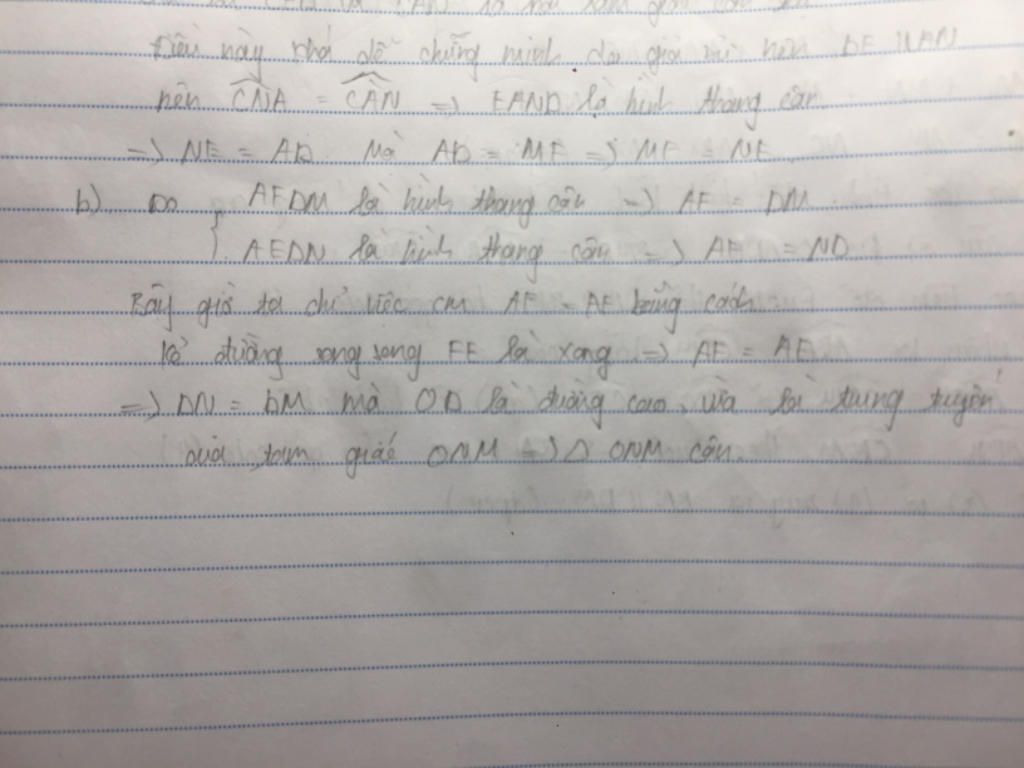 Điều này khá dễ chứng minh do giả nên DE // AN
nên CNA = CAN => EAND là hình thang cân
=> NE = AD Mà AD = MF => MF = NE
b) Do { AFDM là hình thang cân => AF = DM
AEDN là hình thang cân => AE = ND
Bây giờ ta chỉ việc cm AF = AE bằng cách
kẻ đường song song FE là xong => AF = AE
=> DN = DM mà OD là đường cao vừa là trung tuyến
của tam giác ONM => Δ ONM cân